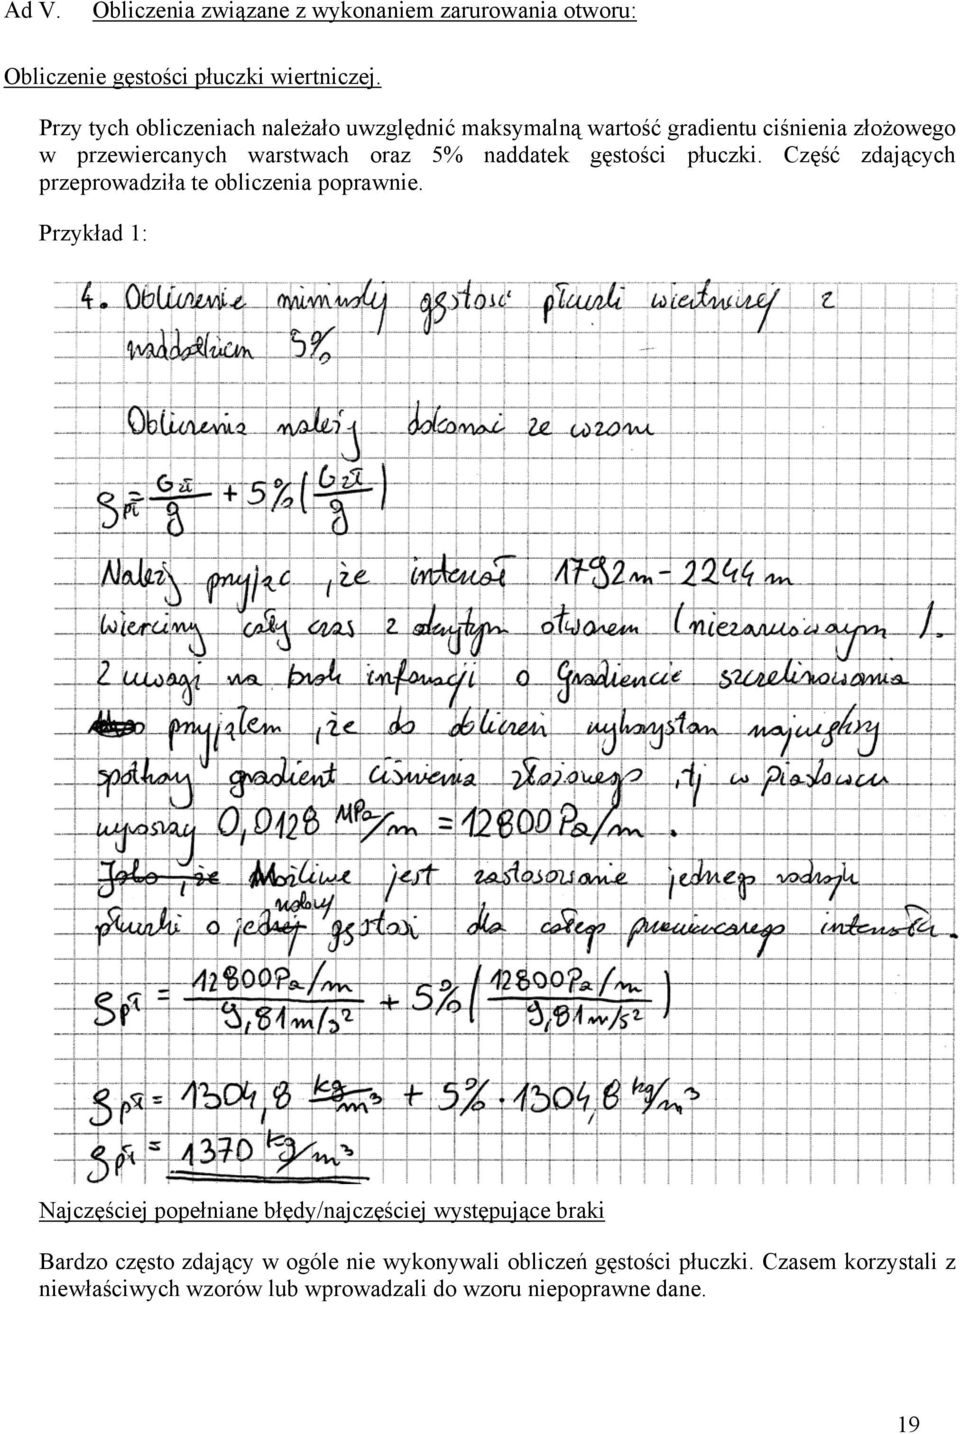 Ad V. Obliczenia związane z wykonaniem zarurowania otworu:
Obliczenie gęstości płuczki wiertniczej.
Przy tych obliczeniach należało uwzględnić maksymalną wartość gradientu ciśnienia złożowego
w przewiercanych warstwach oraz 5% naddatek gęstości płuczki. Część zdających
przeprowadziła te obliczenia poprawnie.
Przykład 1:
4. Obliczenie minimalej gęstość płuczki wiertniczej z
naddatkiem 5%
Obliczenia należy dokonać ze wzoru
ρpł = Gzł/g + 5% (Gzł/g)
Należy przyjąc, że interwał 1792m – 2244m
wiercimy cały czas z odkrytym otworem (niezarurowanym).
Z uwagi na brak informacji o Gradiencie szczelinowania
przyjąłem, że do obliczeń wykorzystam największy
spotkany gradient ciśnienia złożowego, tj w Piaskowcu
wynoszący 0,0128 MPa/m = 12800Pa/m.
Jako, że Możliwe jest zastosowanie jednego rodzaju
płuczki o jednej gęstości dla całego przewiercanego interwału.
ρpł = 12800Pa/m / 9,81m/s² + 5% (12800Pa/m / 9,81m/s²)
ρpł = 1304,8 kg/m³ + 5% · 1304,8 kg/m³
ρpł = 1370 kg/m³
Najczęściej popełniane błędy/najczęściej występujące braki
Bardzo często zdający w ogóle nie wykonywali obliczeń gęstości płuczki. Czasem korzystali z
niewłaściwych wzorów lub wprowadzali do wzoru niepoprawne dane.
19